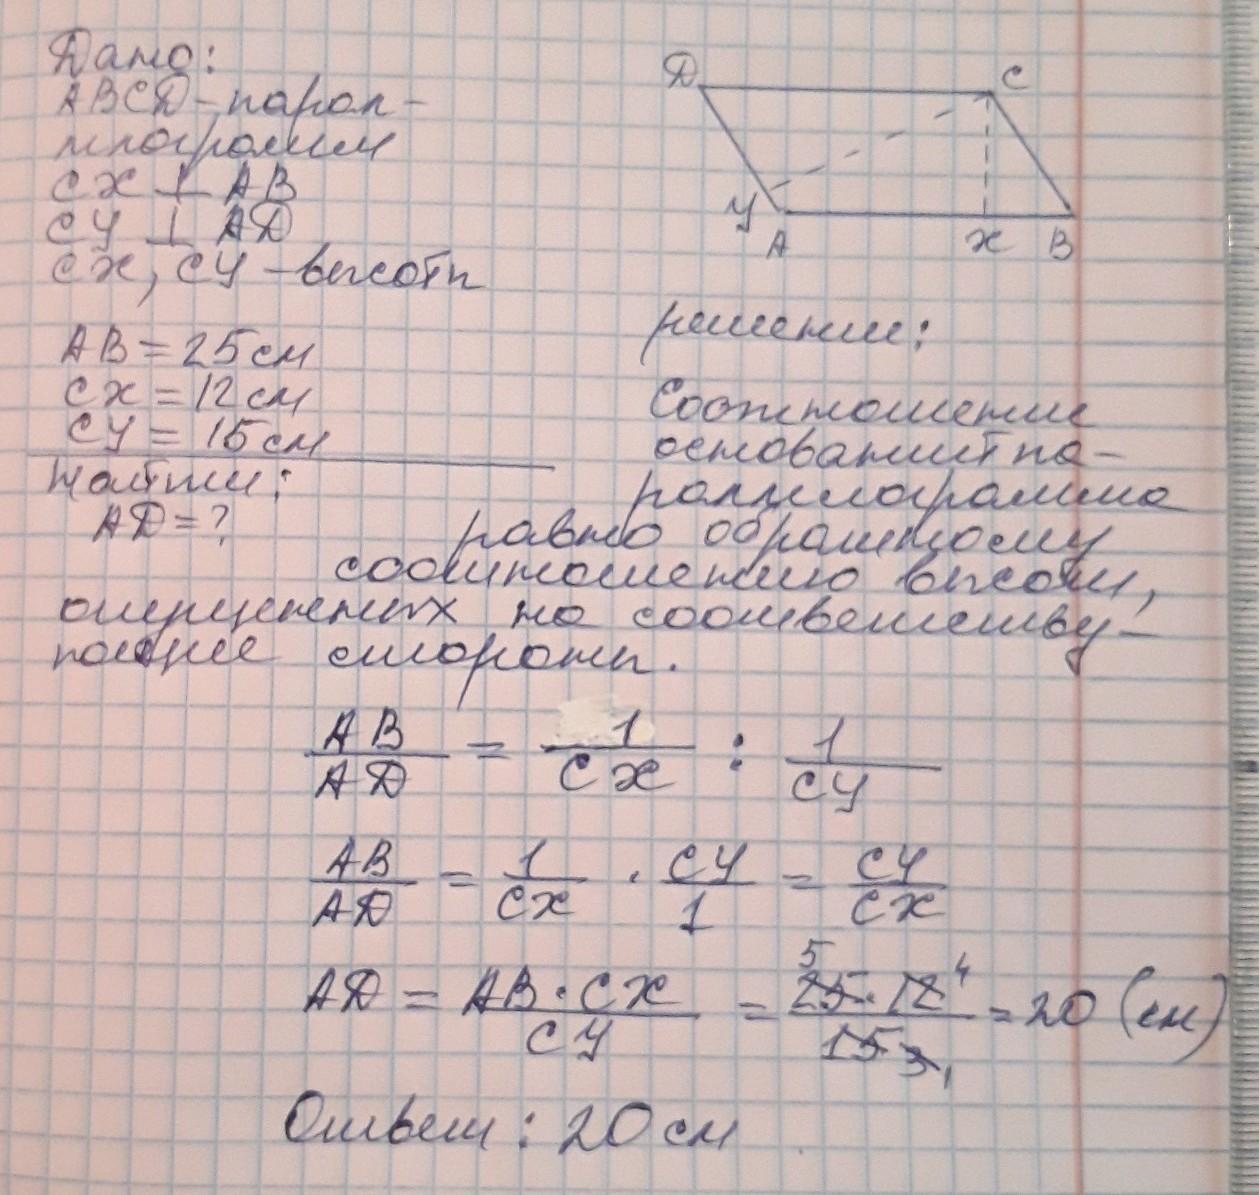 Дано:
ABCD - парал-
лелограмм
CX ⊥ AB
CY ⊥ AD
CX, CY - высоты
AB = 25 см
CX = 12 см
CY = 15 см
Найти:
AD = ?
D C
Y A X B
решение:
Соотношение
оснований па-
раллелограмма
равно обратному
соотношению высот,
опущенных на соответству-
ющие стороны.
AB/AD = 1/CX : 1/CY
AB/AD = 1/CX · CY/1 = CY/CX
AD = AB · CX/CY = 25 · 12/15 = 20 (см)
Ответ: 20 см